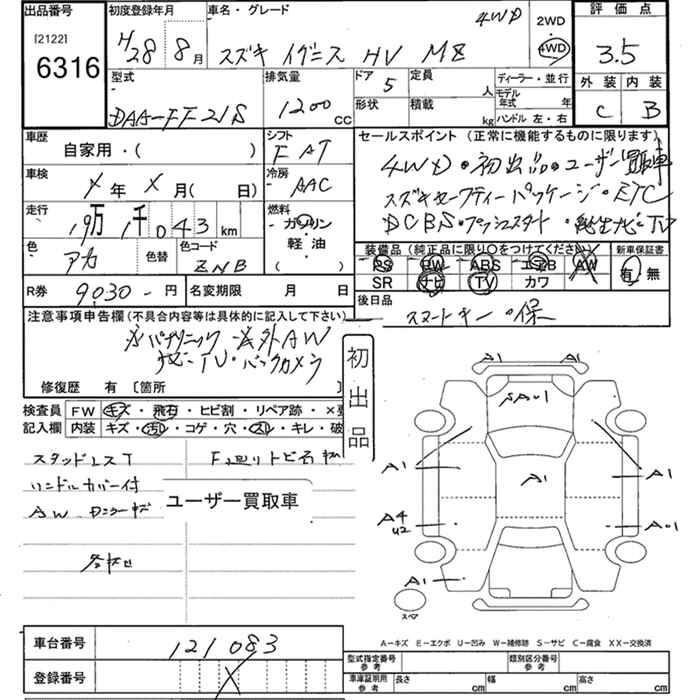 出品番号
[2122]
6316
初度登録年月
H28 8月
車名・グレード
4WD
スズキ イグニス HV MZ
2WD
4WD
評価点
3.5
外装 内装
C B
型式
DAA-FF21S
排気量
1200 CC
ドア 5
定員 人
形状
積載 kg
ディーラー・並行
モデル年式 年
ハンドル 左・右
車歴
自家用・( )
シフト
F AT
セールスポイント(正常に機能するものに限ります)
4WD・初出品・ユーザー買取車
スズキセーフティーパッケージ・ETC
DCBS・プッシュスタート・純正ナビ・TV
車検
X年X月( 日)
冷房
AAC
走行
19万1千043km
燃料
ガソリン
軽油
( )
色
アカ
色替
色コード
ZNB
装備品(純正品に限り○をつけてください)
PS PW ABS エアB AW
SR ナビ TV カワ
新車保証書
有・無
R券 9030-円
名変期限 月 日
後日品
スマートキー・保
注意事項申告欄(不具合内容等は具体的に記入して下さい)
社外AW
ナビ・TV・バックカメラ
修復歴 有〔箇所
初出品
検査員記入欄
FW キズ・飛石・ヒビ割・リペア跡・×
内装 キズ・汚レ・コゲ・穴・スレ・キレ・破
スタッドレスT
F廻りトビ石
ハンドルカバー付
AW
ユーザー買取車
A1 A1
SA01
A1 A1
A1
A4
U2
A01
A1
スペア
A-キズ E-エクボ U-凹み W-補修跡 S-サビ C-腐食 XX-交換済
車台番号 121083
登録番号 X
型式指定番号参考
類別区分番号参考
車庫証明用参考 長さ cm 幅 cm 高さ cm